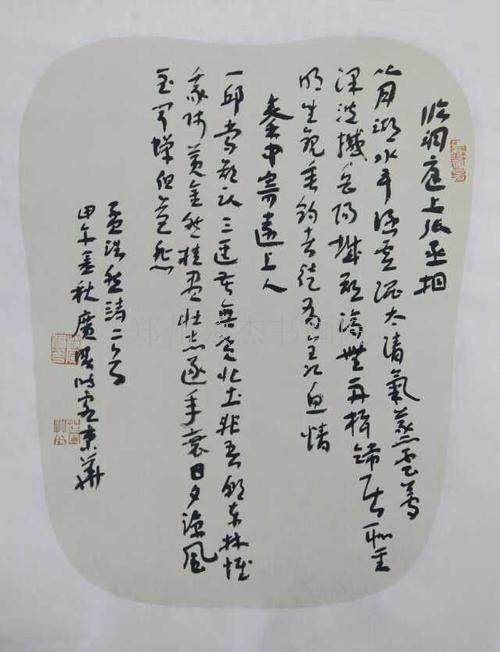 临洞庭上张丞相
八月湖水平涵虚混太清气蒸云梦
泽波撼岳阳城欲济無舟楫端居耻圣
明坐观垂钓者徒有羡鱼情
秦中寄远上人
一邱常欲卧三迳苦無资北土非吾愿东林怀
我师黄金然桂尽壮志逐年衰日夕凉风
至闻蝉但益悲
孟浩然诗二首
甲午金秋廣时客京华